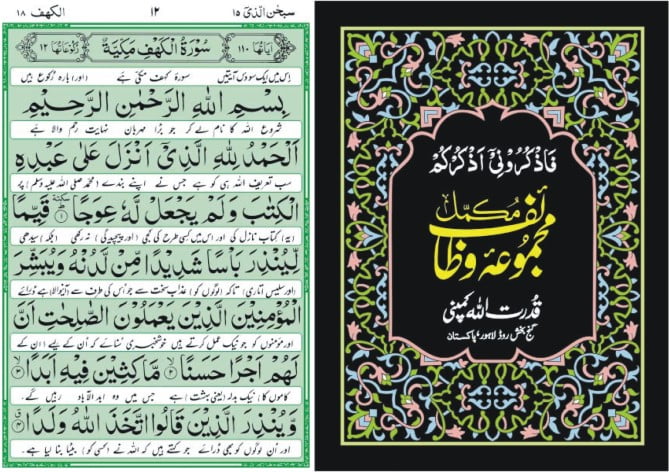 فَاذْكُرُوْنِيْٓ اَذْكُرْكُمْ
مکمل
مجموعۂ وظائف
قدرت اللہ کمپنی
گنج بخش روڈ لاہور، پاکستان
سبحٰن الذیٓ ۱۵ ۱۲ الکھف ۱۸
اٰیَاتُهَا ۱۱۰ سُوْرَةُ الْكَهْفِ مَكِّيَّةٌ رُكُوْعَاتُهَا ۱۲
اس میں ایک سو دس آیتیں سورۂ کہف مکی ہے (اور) بارہ رکوع ہیں
بِسْمِ اللّٰهِ الرَّحْمٰنِ الرَّحِيْمِ
شروع اللہ کا نام لے کر جو بڑا مہربان نہایت رحم والا ہے
اَلْحَمْدُ لِلّٰهِ الَّذِيْٓ اَنْزَلَ عَلٰى عَبْدِهِ
سب تعریف اللہ ہی کو ہے جس نے اپنے بندے (محمد صلی اللہ علیہ وسلم) پر
الْكِتٰبَ وَلَمْ يَجْعَلْ لَّهٗ عِوَجًا ۱ قَيِّمًا
(یہ) کتاب نازل کی اور اس میں کسی طرح کی کجی (اور پیچیدگی) نہ رکھی (بلکہ) سیدھی
لِّيُنْذِرَ بَاْسًا شَدِيْدًا مِّنْ لَّدُنْهُ وَيُبَشِّرَ
(اور سلیس اتاری) تاکہ (لوگوں کو) عذاب سخت سے جو اس کی طرف سے (آنیوالا) ہے ڈرائے
الْمُؤْمِنِيْنَ الَّذِيْنَ يَعْمَلُوْنَ الصّٰلِحٰتِ اَنَّ
اور مومنوں کو جو نیک عمل کرتے ہیں خوشخبری سنائے کہ اُن کے لیے (ان کے
لَهُمْ اَجْرًا حَسَنًا ۲ مَّاكِثِيْنَ فِيْهِ اَبَدًا ۳
کاموں کا) نیک بدلہ (یعنی بہشت) ہے جس میں وہ ابد الآباد رہیں گے۔
وَّيُنْذِرَ الَّذِيْنَ قَالُوا اتَّخَذَ اللّٰهُ وَلَدًا ۴
اور اُن لوگوں کو بھی ڈرائے جو کہتے ہیں کہ اللہ نے (کسی کو) بیٹا بنا لیا ہے۔